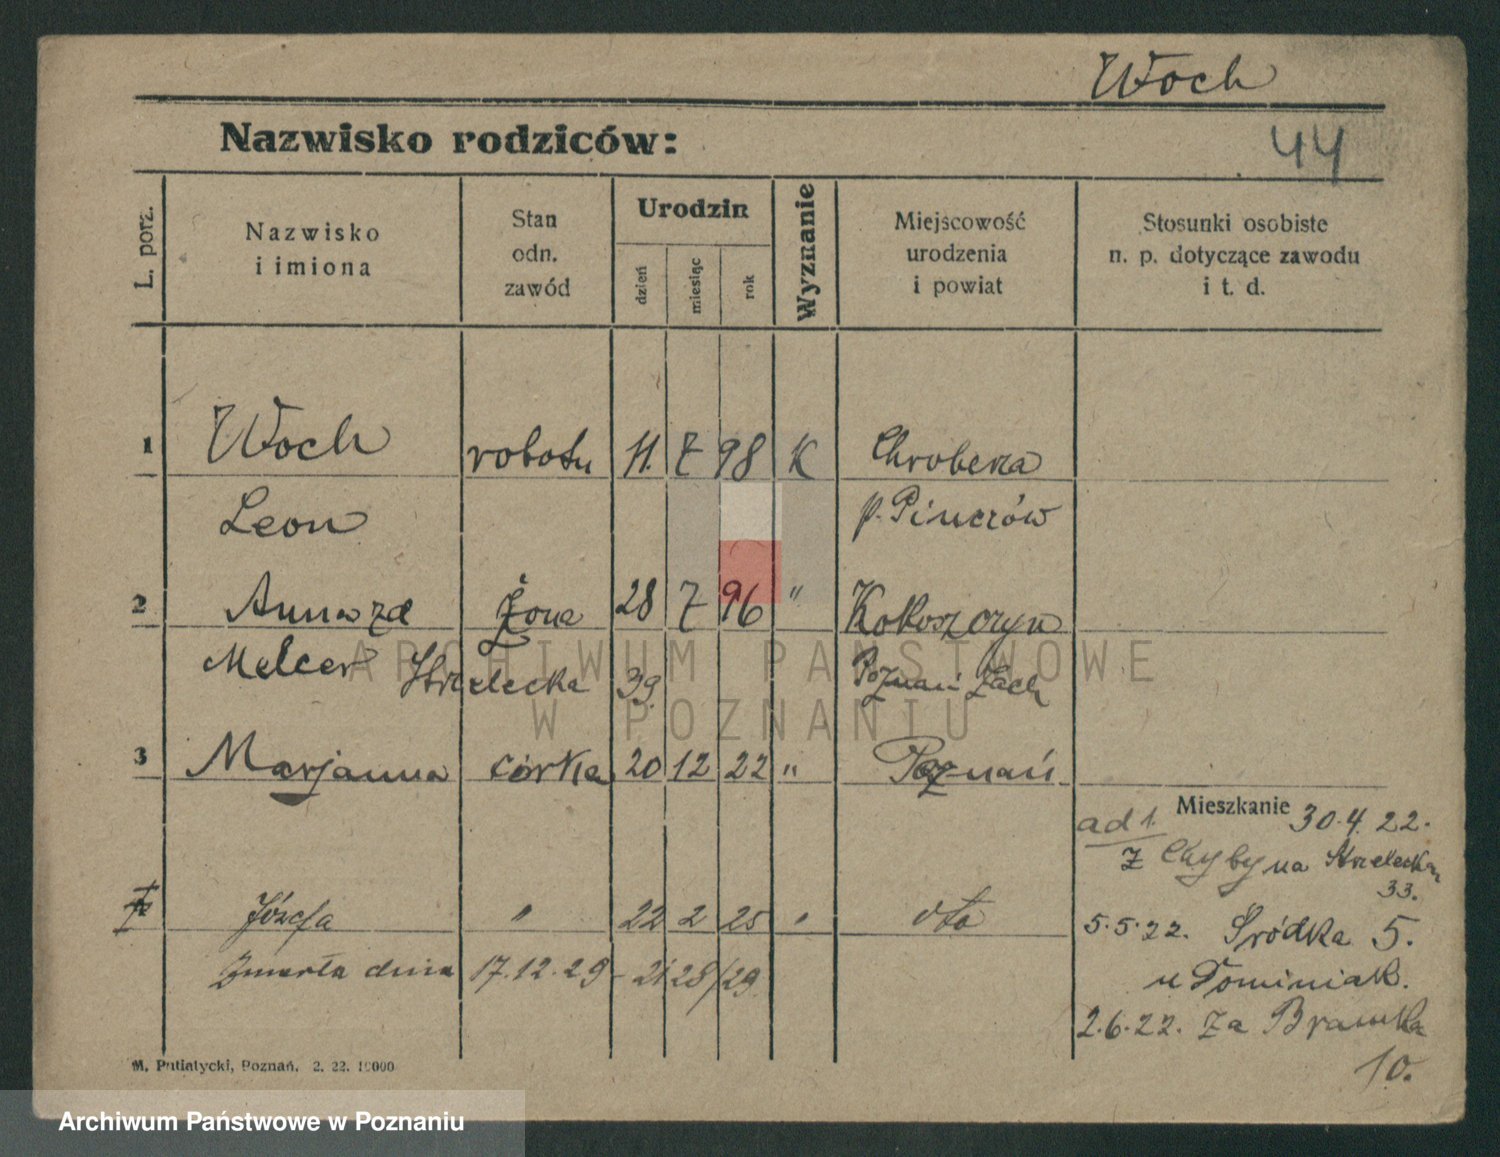 Woch
Nazwisko rodziców:
44
L. porz.
Nazwisko
i imiona
Stan
odn.
zawód
Urodzin
dzień
miesiąc
rok
Wyznanie
Miejscowość
urodzenia
i powiat
Stosunki osobiste
n. p. dotyczące zawodu
i t. d.
1 Woch robotn 11. 7 98 K Chroberza
Leon p. Pinczów
2 Anna zd Żona 28 7 96 " Kokoszczyn
Melcer Strzelecka 39 Poznań Zach
ARCHIWUM PAŃSTWOWE
W POZNANIU
3 Marjanna córka 20 12 22 " Poznań
Mieszkanie
ad 1 30.4.22.
z Chyby na Strzelecka
33.
Józefa " 22 2 25 "
5.5.22. Śródka 5.
Zmarła dnia 17.12.29 - 21 28/29
u Dominiak.
2.6.22. Za Bramka
10.
M. Putiatycki, Poznań. 2. 22. 10000
Archiwum Państwowe w Poznaniu